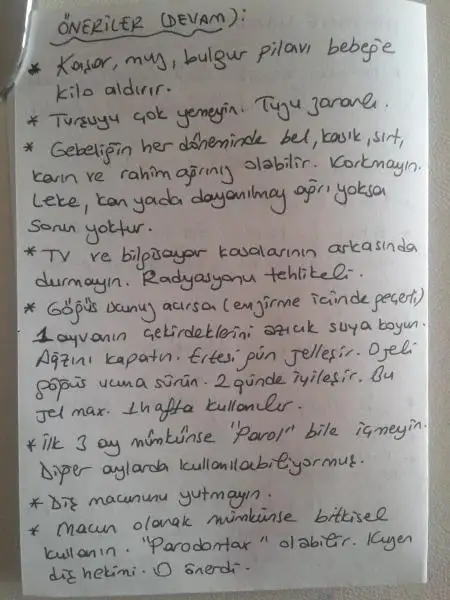 ÖNERİLER (DEVAM):
* Kaşar, muz, bulgur pilavı bebeğe
kilo aldırır.
* Turşuyu çok yemeyin. Tuzu zararlı.
* Gebeliğin her döneminde bel, kasık, sırt,
karın ve rahim ağrınız olabilir. Korkmayın.
Leke, kan yada dayanılmaz ağrı yoksa
sorun yoktur.
* TV ve bilgisayar kasalarının arkasında
durmayın. Radyasyonu tehlikeli.
* Göğüs ucunuz acırsa (emzirme içinde geçerli)
1 ayvanın çekirdeklerini azıcık suya koyun.
Ağzını kapatın. Ertesi gün jelleşir. O jeli
göğüs ucuna sürün. 2 günde iyileşir. Bu
jel max. 1 hafta kullanılır.
* İlk 3 ay mümkünse "Parol" bile içmeyin.
Diğer aylarda kullanılabiliyormuş.
* Diş macununu yutmayın.
* Macun olarak mümkünse bitkisel
kullanın. "Parodontax" olabilir. Kuzen
diş hekimi. O önerdi.